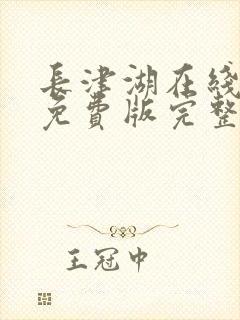 長津湖在綫
免費版完整
王冠中